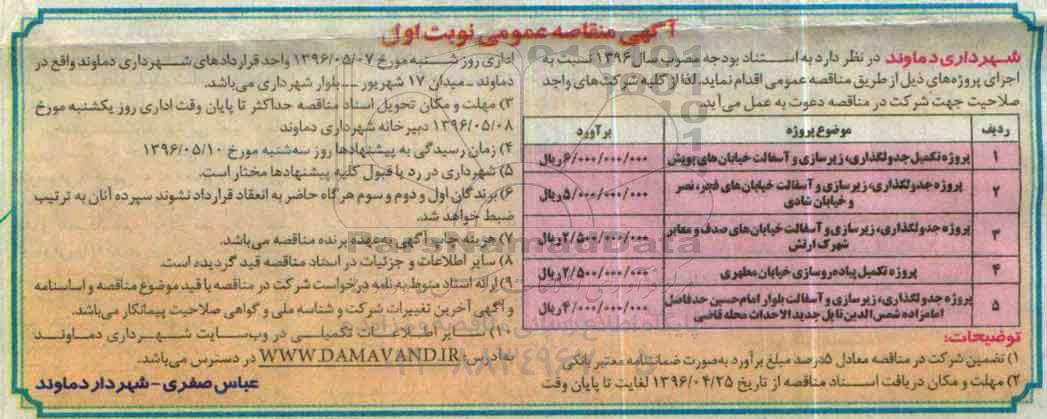 آگهی مناقصه عمومی نوبت اول
شهرداری دماوند در نظر دارد به استناد بودجه مصوب سال ۱۳۹۶ نسبت به
اجرای پروژه‌های ذیل از طریق مناقصه عمومی اقدام نماید. لذا از کلیه شرکت‌های واجد
صلاحیت جهت شرکت در مناقصه دعوت به عمل می‌آید.
ردیف موضوع پروژه برآورد
۱ پروژه تکمیل جدولگذاری، زیرسازی و آسفالت خیابان‌های پویش ۶/۰۰۰/۰۰۰/۰۰۰ ریال
۲ پروژه جدولگذاری، زیرسازی و آسفالت خیابان‌های فجر، نصر ۵/۰۰۰/۰۰۰/۰۰۰ ریال
و خیابان شادی
۳ پروژه جدولگذاری، زیرسازی و آسفالت خیابان‌های صدف و معابر ۲/۵۰۰/۰۰۰/۰۰۰ ریال
شهرک ارتش
۴ پروژه تکمیل پیاده‌روسازی خیابان مطهری ۲/۵۰۰/۰۰۰/۰۰۰ ریال
۵ پروژه جدولگذاری، زیرسازی و آسفالت بلوار امام حسین حدفاصل ۴/۰۰۰/۰۰۰/۰۰۰ ریال
امامزاده شمس‌الدین تا پل جدید الاحداث محله قاضی
توضیحات:
۱) تضمین شرکت در مناقصه معادل ۵درصد مبلغ برآورد به‌صورت ضمانتنامه معتبر بانکی
۲) مهلت و مکان دریافت اسناد مناقصه از تاریخ ۱۳۹۶/۰۴/۲۵ لغایت تا پایان وقت
اداری روز شنبه مورخ ۱۳۹۶/۰۵/۰۷ واحد قراردادهای شهرداری دماوند واقع در
دماوند ـ میدان ۱۷ شهریور ـ بلوار شهرداری می‌باشد.
۳) مهلت و مکان تحویل اسناد مناقصه حداکثر تا پایان وقت اداری روز یکشنبه مورخ
۱۳۹۶/۰۵/۰۸ دبیرخانه شهرداری دماوند
۴) زمان رسیدگی به پیشنهادها روز سه‌شنبه مورخ ۱۳۹۶/۰۵/۱۰
۵) شهرداری در رد یا قبول کلیه پیشنهادها مختار است.
۶) برندگان اول و دوم و سوم هرگاه حاضر به انعقاد قرارداد نشوند سپرده آنان به ترتیب
ضبط خواهد شد.
۷) هزینه چاپ آگهی برعهده برنده مناقصه می‌باشد.
۸) سایر اطلاعات و جزئیات در اسناد مناقصه قید گردیده است.
۹) ارائه اسناد منوط به نامه درخواست شرکت در مناقصه با قید موضوع مناقصه و اساسنامه
و آگهی آخرین تغییرات شرکت و شناسه ملی و گواهی صلاحیت پیمانکار می‌باشد.
۱۰) سایر اطلاعات تکمیلی در وب‌سایت شهرداری دماوند
به‌آدرس: WWW.DAMAVAND.IR در دسترس می‌باشد.
عباس صفری - شهردار دماوند
ParsNamadData
۰۲۱-۸۸۳۴۹۶۷۰